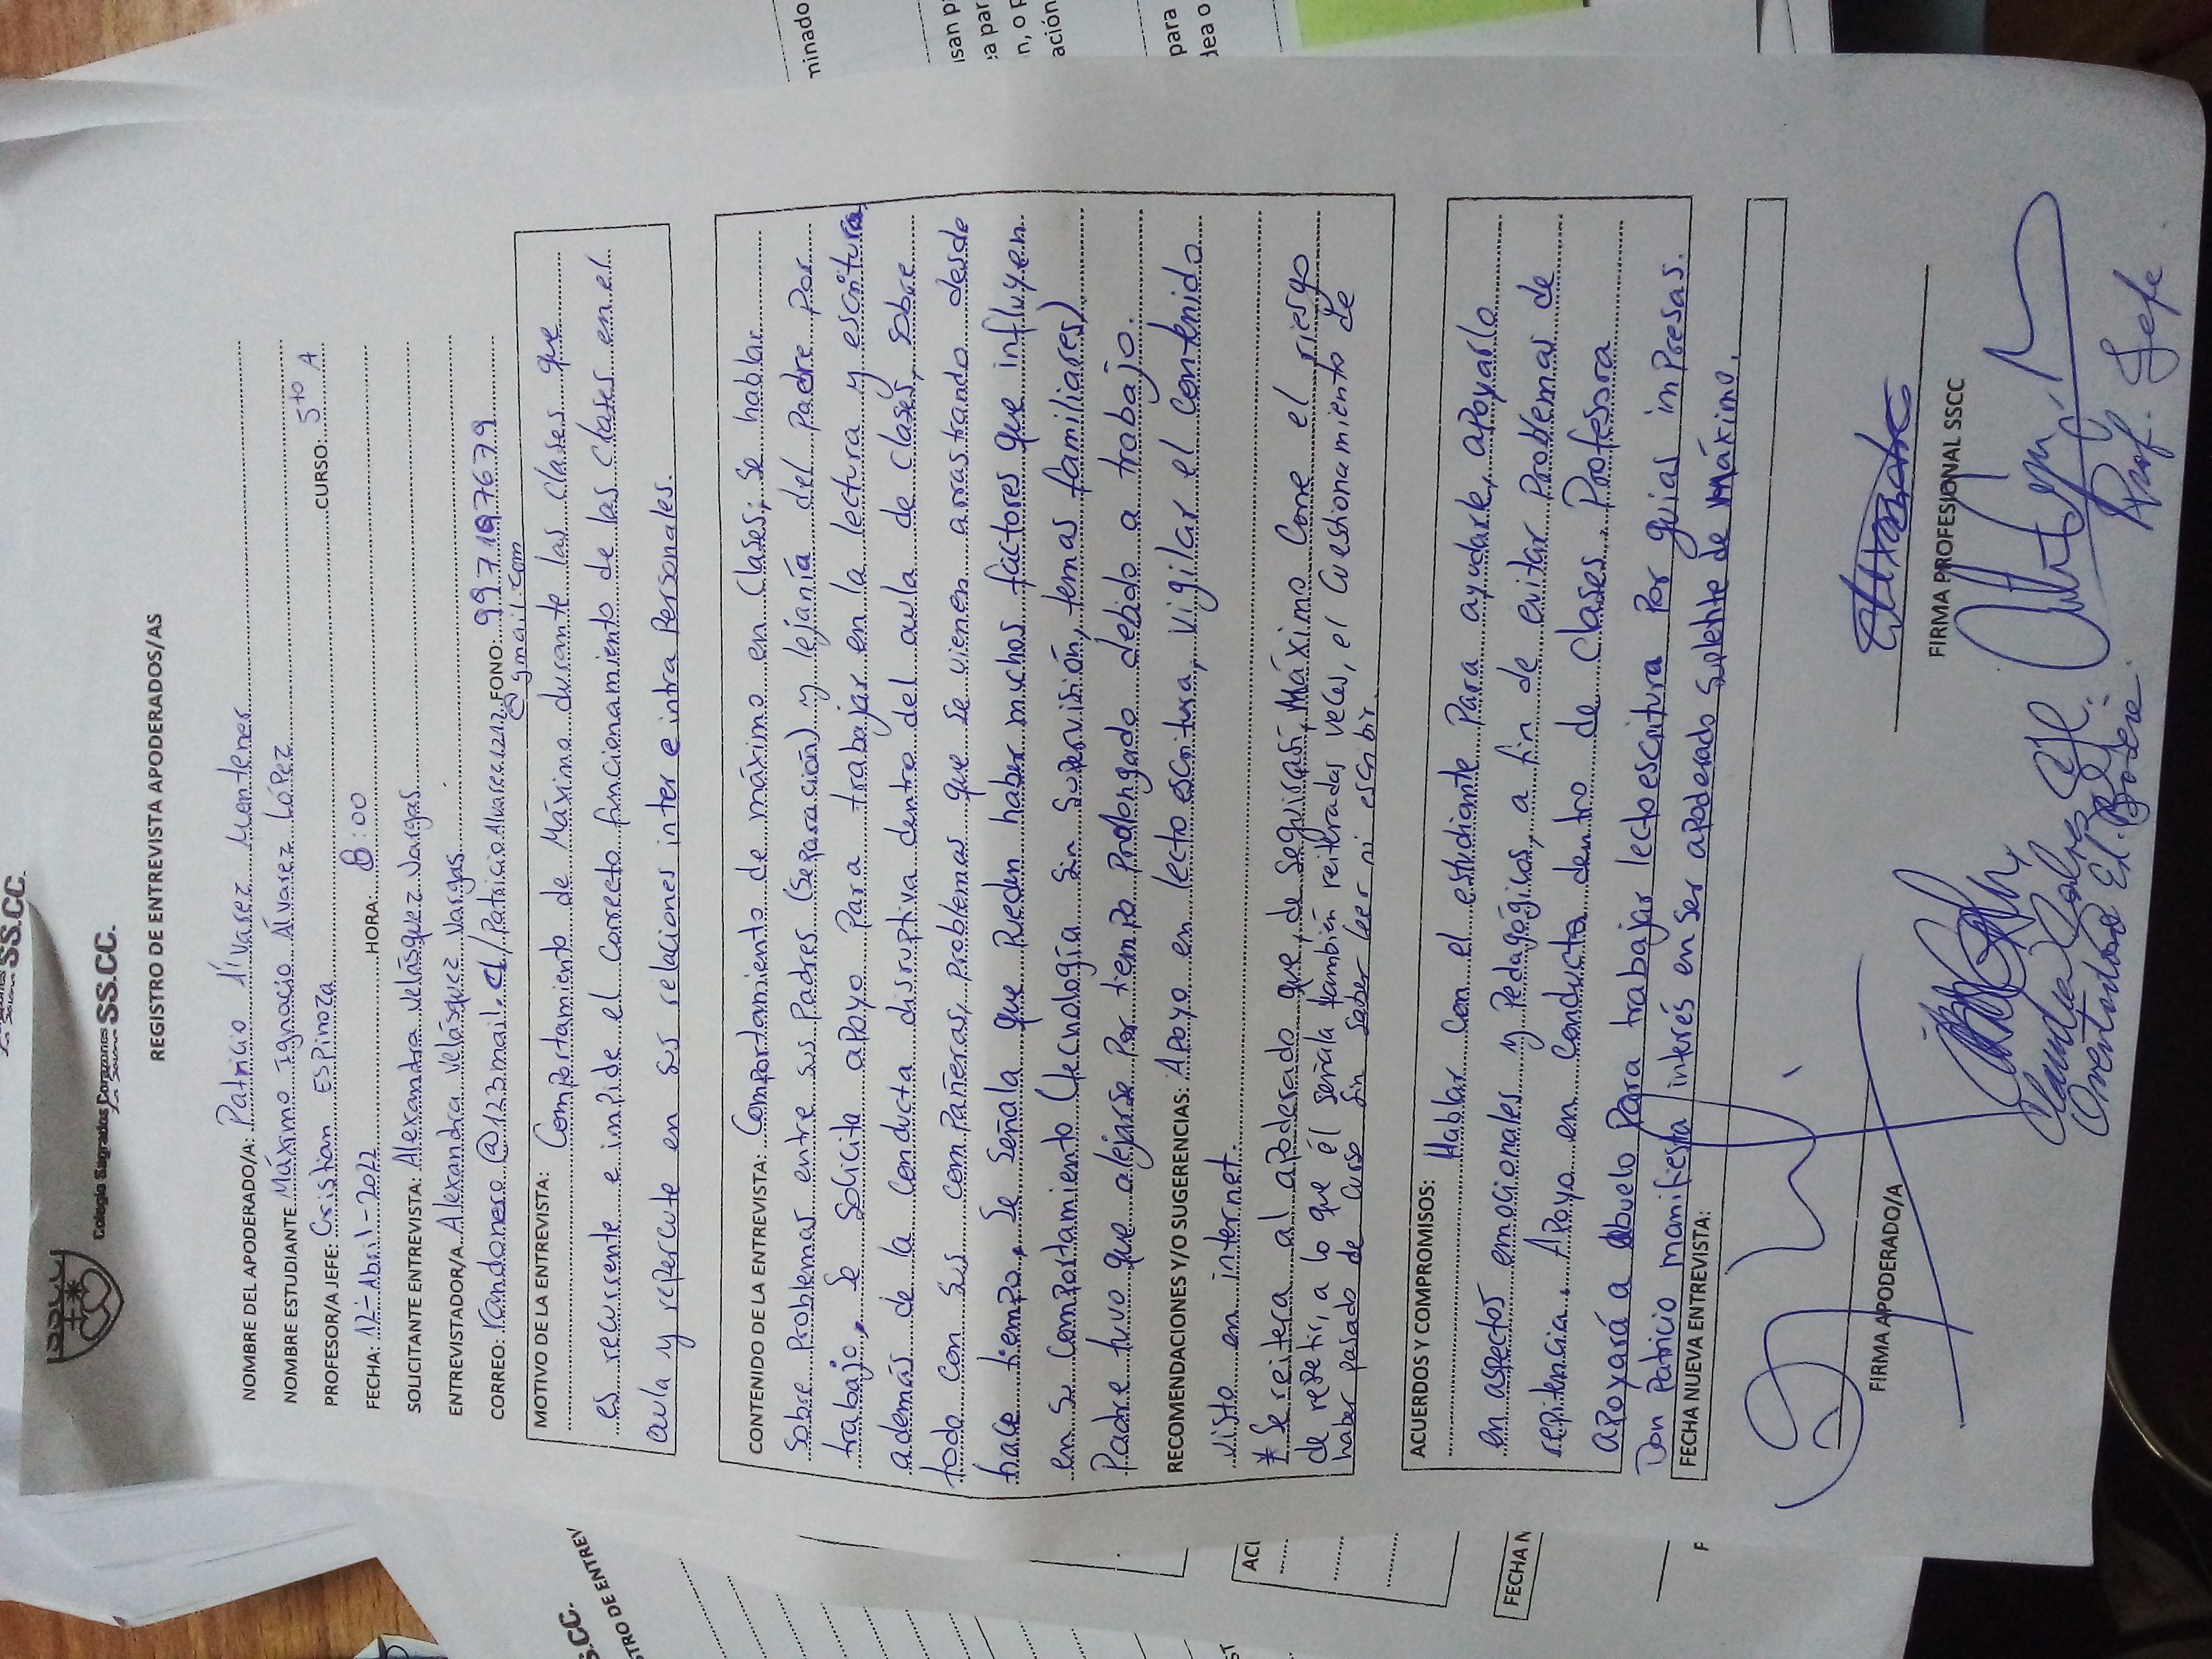 Colegio Sagrados Corazones SS.CC.
REGISTRO DE ENTREVISTA APODERADOS/AS
NOMBRE DEL APODERADO/A: Patricio Álvarez
NOMBRE ESTUDIANTE. Máximo Ignacio Álvarez López
PROFESOR/A JEFE: Cristian Espinoza CURSO: 5to A
FECHA: 12-Abril-2022 HORA: 8:00
SOLICITANTE ENTREVISTA: Alexandra Velásquez Vargas
ENTREVISTADOR/A Alexandra Velásquez Vargas
CORREO: @123mail.cl/PatricioAlvarez1212 FONO:
@gmail.com
MOTIVO DE LA ENTREVISTA: Comportamiento de Máximo durante las clases que
es recurrente e impide el correcto funcionamiento de las clases en el
aula y repercute en sus relaciones inter e intra personales.
CONTENIDO DE LA ENTREVISTA: Comportamiento de máximo en clases; se hablar
sobre problemas entre sus padres (separación) y lejanía del padre por
trabajo, se solicita apoyo para trabajar en la lectura y escritura
además de la conducta disruptiva dentro del aula de clases, sobre
todo con sus compañeras, problemas que se vienen arrastrando desde
hace tiempo, se señala que pueden haber muchos factores que influyen
en su comportamiento (tecnología sin supervisión, temas familiares)
Padre tuvo que alejarse por tiempo prolongado debido a trabajo.
RECOMENDACIONES Y/O SUGERENCIAS: Apoyo en lecto escritura, vigilar el contenido
visto en internet.
* Se reitera al apoderado que, de seguir así, Máximo corre el riesgo
de repetir, a lo que él señala también reiteradas veces, el cuestionamiento de
haber pasado de curso sin saber leer ni escribir.
ACUERDOS Y COMPROMISOS: Hablar con el estudiante para ayudarle, apoyarlo
en aspectos emocionales y pedagógicos, a fin de evitar problemas de
repitencia. Apoyo en conducta dentro de clases. Profesora
apoyará a abuelo para trabajar lectoescritura por guías impresas.
Don Patricio manifiesta interés en ser apoderado suplente de Máximo.
FECHA NUEVA ENTREVISTA:
FIRMA APODERADO/A
FIRMA PROFESIONAL SSCC
Orientadora
Prof. Jefe